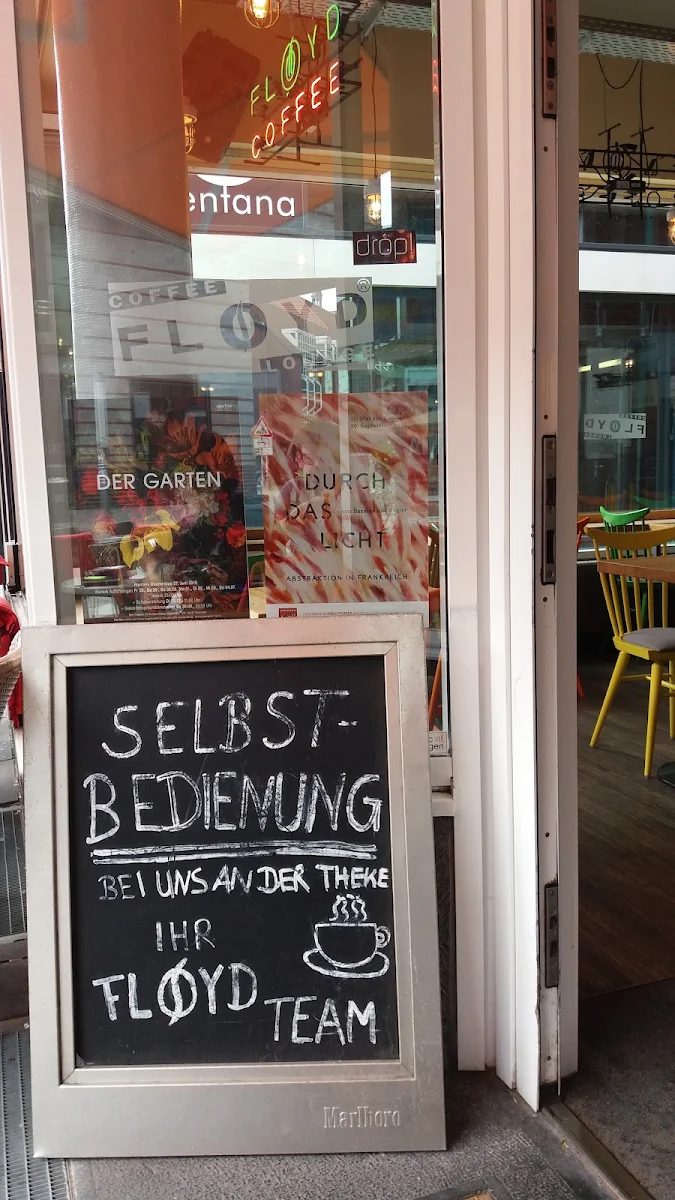 FLØYD
COFFEE
entana
drop!
COFFEE
FLØYD®
DER GARTEN
DURCH
DAS
LICHT
ABSTRAKTION IN FRANKREICH
COFFEE
FLØYD
SELBST-
BEDIENUNG
BEI UNS AN DER THEKE
IHR
FLØYD
TEAM
Marlboro